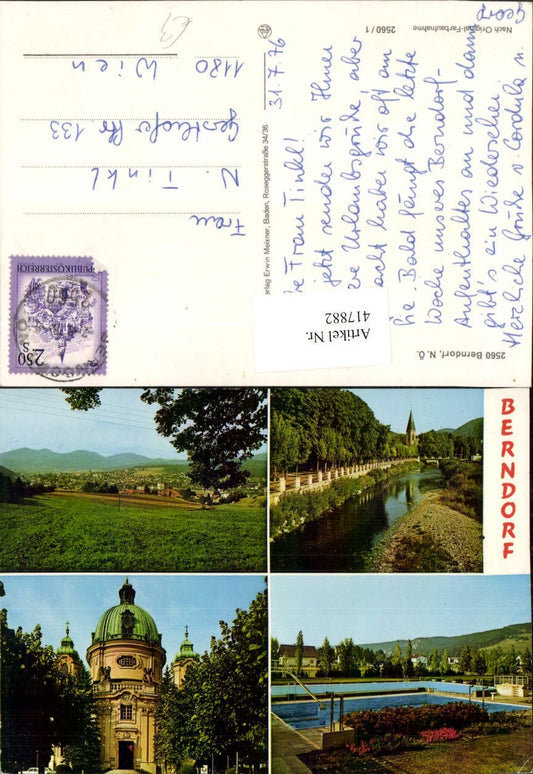 Nach Original-Farbaufnahme
2560/1
31.7.76
Frau Tinkl!
jetzt senden wir Ihnen
Urlaubsgrüße, aber
haben wir oft an
Sie. Bald fängt die letzte
Woche unseres Berndorf-
Aufenthaltes an und dann
gibt's ein Wiedersehen
Herzliche Grüße v. Cordula u.
Georg
Frau
N. Tinkl
Gersthofer Str. 133
1180 Wien
erlag Erwin Meixner, Baden, Roseggerstraße 34/36
2560 Berndorf, N.Ö.
Artikel Nr.
417882
REPUBLIK ÖSTERREICH
2.50
S
2560
BERNDORF